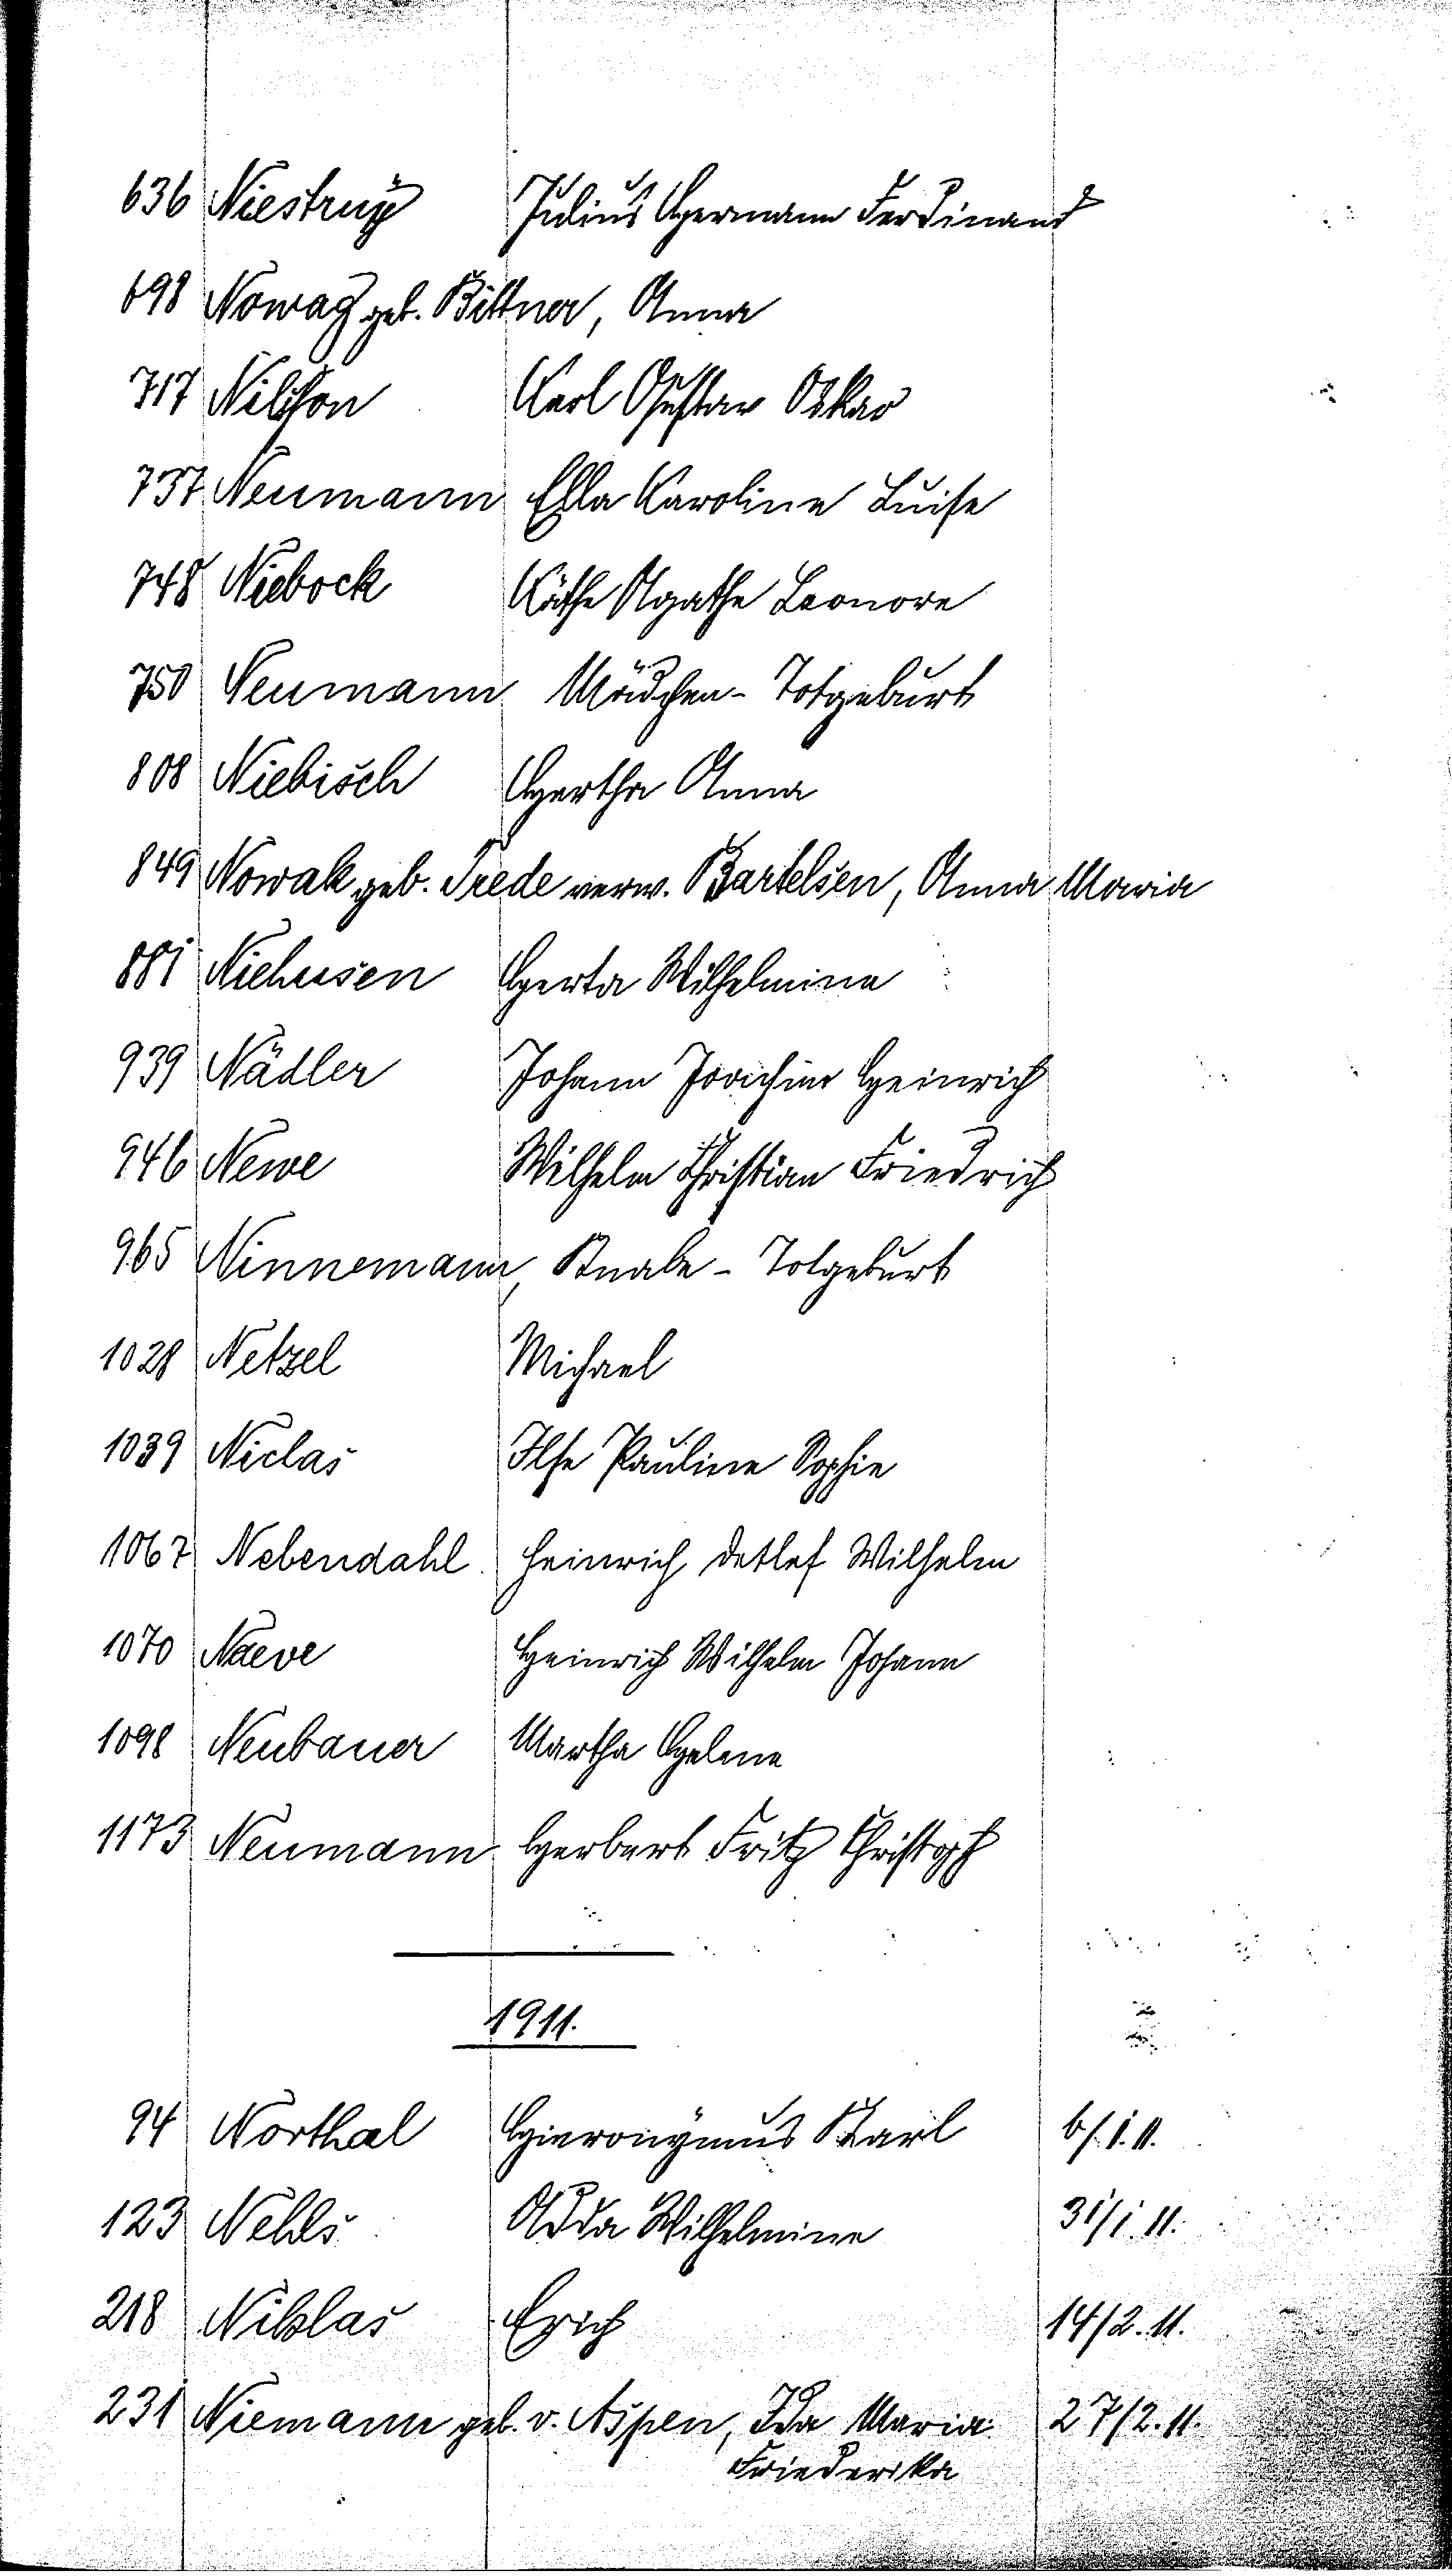 636 Niestruy Julius Hermann Ferdinand
698 Nowag geb. Bittner, Anna
717 Nilsson Karl Gustav Oskar
737 Neumann Ella Karoline Luise
748 Niebock Käthe Agathe Leonore
750 Neumann Mädchen - Totgeburt
808 Niebisch Hertha Anna
849 Nowak geb. Trede verw. Bartelsen, Anna Maria
881 Niehusen Herta Wilhelmine
939 Nädler Johann Joachim Heinrich
946 Newe Wilhelm Christian Friedrich
965 Ninnemann, Knabe - Totgeburt
1028 Netzel Michael
1039 Niclas Ilse Pauline Sophie
1067 Nebendahl Heinrich Detlef Wilhelm
1070 Naeve Heinrich Wilhelm Johann
1098 Neubauer Martha Helene
1173 Neumann Herbert Fritz Christoph
1911.
94 Northal Hieronymus Karl 6/1.11.
123 Nehls Adda Wilhelmine 31/1.11.
218 Niklas Erich 14/2.11.
231 Niemann geb. v. Aspen, Ida Maria 27/2.11.
Friederika